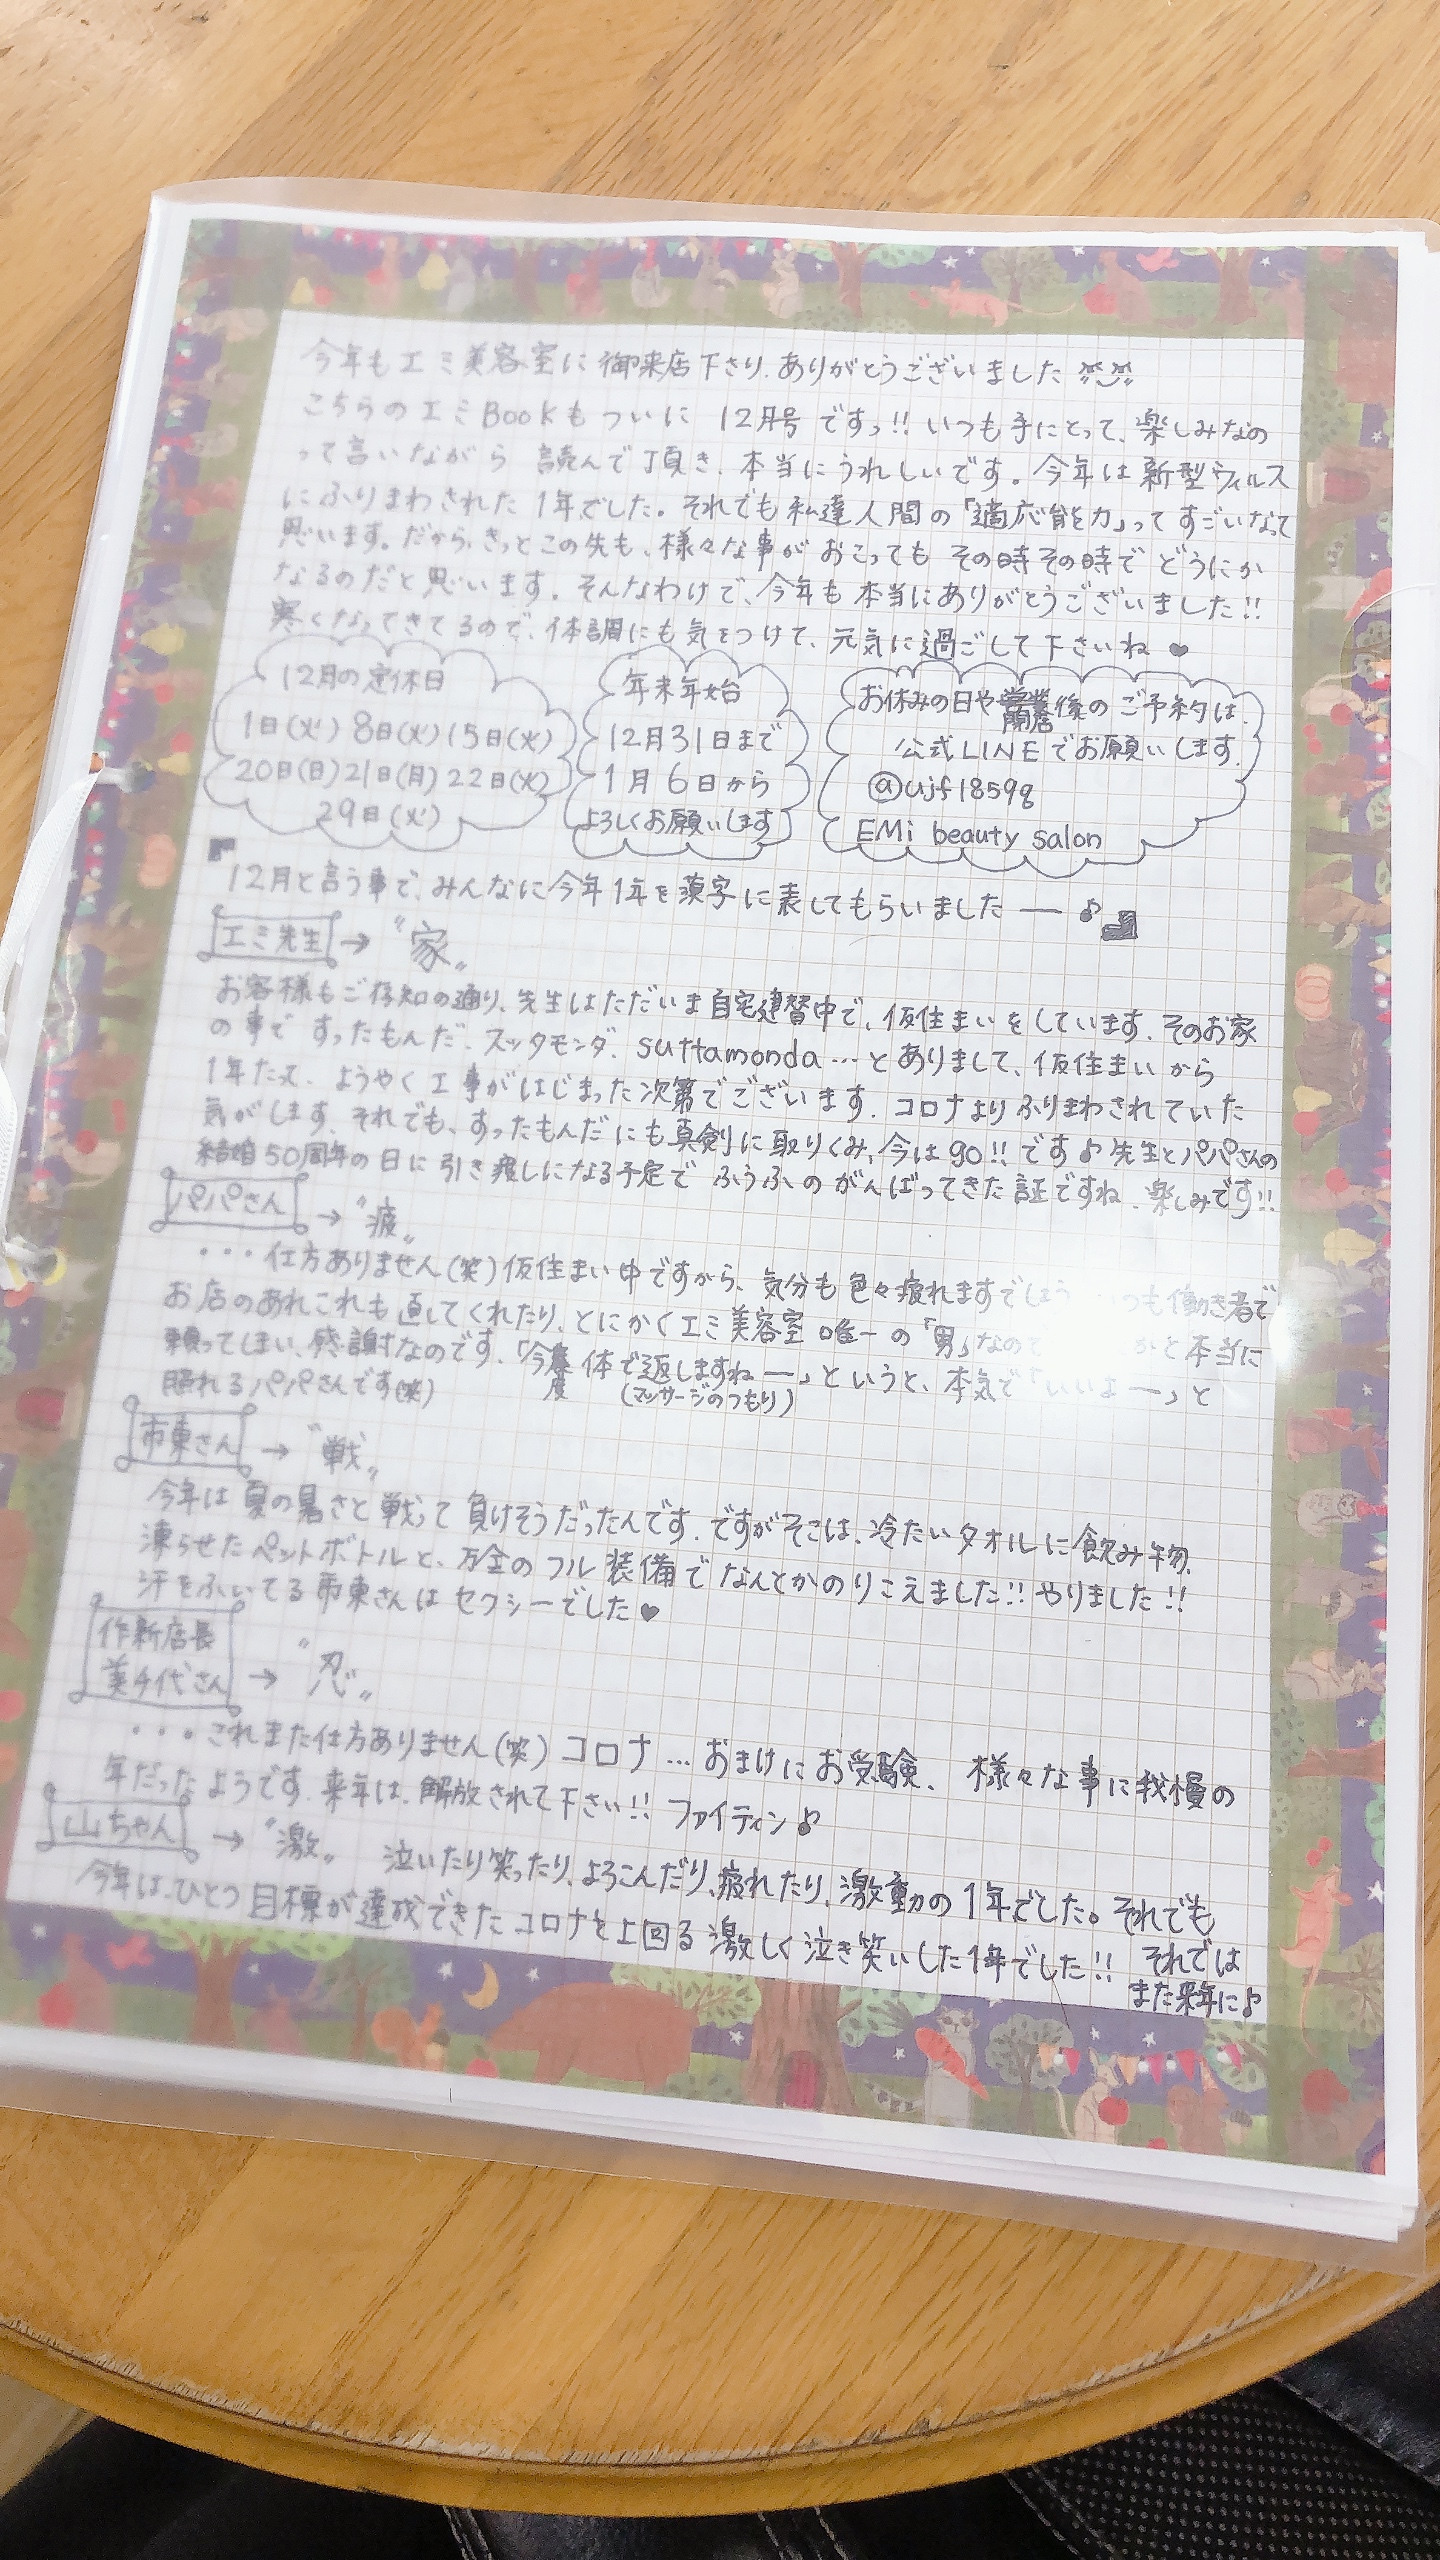 今年もエミ美容室に御来店下さり、ありがとうございました
こちらのエミBookもついに 12月号ですっ!! いつも手にとって、楽しみなの
って言いながら 読んで頂き、本当にうれしいです。今年は新型ウィルス
にふりまわされた1年でした。それでも私達人間の「適応能力」ってすごいなって
思います。だから、きっとこの先も、様々な事がおこってもその時その時でどうにか
なるのだと思います。そんなわけで、今年も本当にありがとうございました!!
寒くなってきてるので、体調にも気をつけて、元気に過ごして下さいね♥
12月の定休日
1日(火) 8日(火) 15日(火)
20日(日) 21日(月) 22日(火)
29日(火)
年末年始
12月31日まで
1月6日から
よろしくお願いします
お休みの日や閉店後のご予約は、
公式LINEでお願いします。
@ujf1859g
EMi beauty salon
『12月と言う事で、みんなに今年1年を漢字に表してもらいましたー♪』
エミ先生→“家”
お客様もご存知の通り、先生はただいま自宅建替中で、仮住まいをしています。そのお家
の事ですったもんだ、スッタモンダ、suttamonda…とありまして、仮住まいから
1年たって、ようやく工事がはじまった次第でございます。コロナよりふりまわされていた
気がします。それでも、すったもんだにも真剣に取りくみ、今はgo!!です♪先生とパパさんの
結婚50周年の日に引き渡しになる予定でふうふのがんばってきた証ですね。楽しみです!!
パパさん→“疲”
・・・仕方ありません(笑)仮住まい中ですから、気分も色々疲れますでしょう つも働き者で
お店のあれこれも直してくれたり、とにかくエミ美容室唯一の「男」なので かと本当に
頼ってしまい、感謝なのです。「今度体で返しますねー」というと、本気で「いいよー」と
(マッサージのつもり)
照れるパパさんです(笑)
市東さん→“戦”
今年は夏の暑さと戦って負けそうだったんです。ですがそこは、冷たいタオルに飲み物、
凍らせたペットボトルと、万全のフル装備でなんとかのりこえました!!やりました!!
汗をふいてる市東さんはセクシーでした♥
作新店長
美千代さん→“忍”
・・・これまた仕方ありません(笑)コロナ…おまけにお受験、様々な事に我慢の
年だったようです。来年は、解放されて下さい!! ファイティン♪
山ちゃん→“激” 泣いたり笑ったり、よろこんだり、疲れたり、激動の1年でした。それでも
今年は、ひとつ目標が達成できたコロナを上回る激しく泣き笑いした1年でした!! それでは
また来年に♪